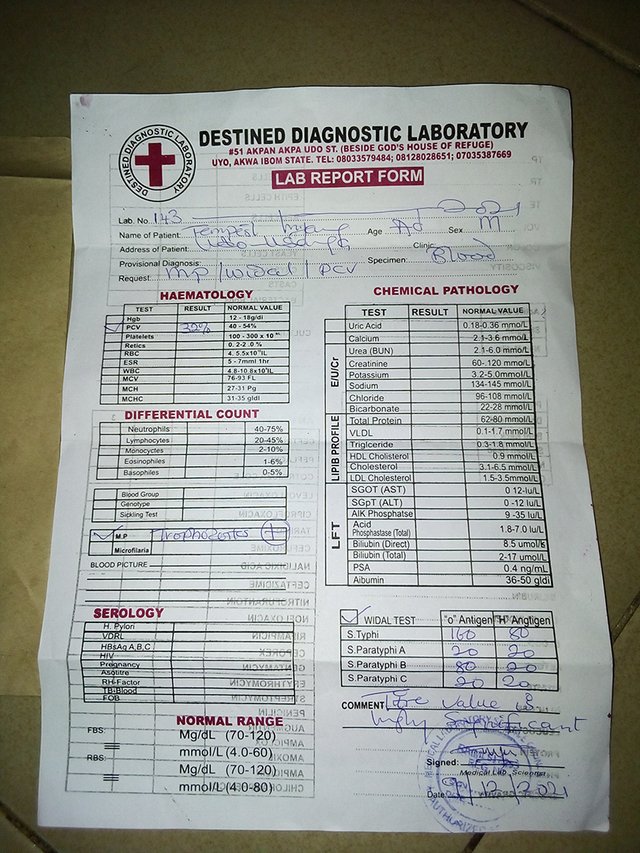 DESTINED DIAGNOSTIC LABORATORY
DESTINED DIAGNOSTIC LABORATORY
#51 AKPAN AKPA UDO ST. (BESIDE GOD'S HOUSE OF REFUGE)
UYO, AKWA IBOM STATE. TEL: 08033579484; 08128028651; 07035387669
LAB REPORT FORM
Lab. No. 143
Name of Patient: Tempest Age Ad Sex M
Address of Patient: Clinic
Provisional Diagnosis: Specimen: Blood
Request: MP/Widal/PCV
HAEMATOLOGY
TEST RESULT NORMAL VALUE
Hgb 12 - 18g/dl
PCV 32% 40 - 54%
Platelets 100 - 300 x 10
Retics 0.2 -2.0 %
RBC 4. 5.5x10 IL
ESR 5 - 7mml 1hr
WBC 4.8-10.8x10 IL
MCV 76-93 FL
MCH 27-31 Pg
MCHC 31-35 gldl
DIFFERENTIAL COUNT
Neutrophils 40-75%
Lymphocytes 20-45%
Monocytes 2-10%
Eosinophiles 1-6%
Basophiles 0-5%
Blood Group
Genotype
Sickling Test
M.P Trophozoites +
Microfilaria
BLOOD PICTURE
SEROLOGY
H. Pylori
VDRL
HBsAq A,B,C
HIV
Pregnancy
Asolitre
RH-Factor
TB-Blood
FOB
NORMAL RANGE
FBS: Mg/dL (70-120)
mmol/L (4.0-60)
RBS: Mg/dL (70-120)
mmol/L (4.0-80)
CHEMICAL PATHOLOGY
TEST RESULT NORMAL VALUE
E/U/Cr
Uric Acid 0.18-0.36 mmo/L
Calcium 2.1-3.6 mmo/L
Urea (BUN) 2.1-6.0 mmo/L
Creatinine 60-120 mmo/L
Potassium 3.2-5.0mmo/L
Sodium 134-145 mmo/L
Chloride 96-108 mmol/L
Bicarbonate 22-28 mmol/L
Total Protein 62-80 mmol/L
LIPIB PROFILE
VLDL 0.1-1.7 mmo/L
Triglceride 0.3-1.8 mmo/L
HDL Cholisterol 0.9 mmo/L
Cholesterol 3.1-6.5 mmo/L
LDL Cholesterol 1.5-3.5mmo/L
LFT
SGOT (AST) 0 12-Iu/L
SGpT (ALT) -0 12 Iu/L
AlK Phosphatse 9 -35 Iu/L
Acid Phosphastase (Total) 1.8-7.0 Iu/L
Biliubin (Direct) 8.5 umol/s
Biliubin (Total) 2-17 umol/L
PSA 0.4 ng/mL
Aibumin 36-50 gldl
WIDAL TEST "o" Antigen "H" Angtigen
S.Typhi 160 80
S.Paratyphi A 20 20
S.Paratyphi B 80 20
S.Paratyphi C 20 20
COMMENT Titre value is
highly significant
Signed:
Medical Lab. Scientist
Date